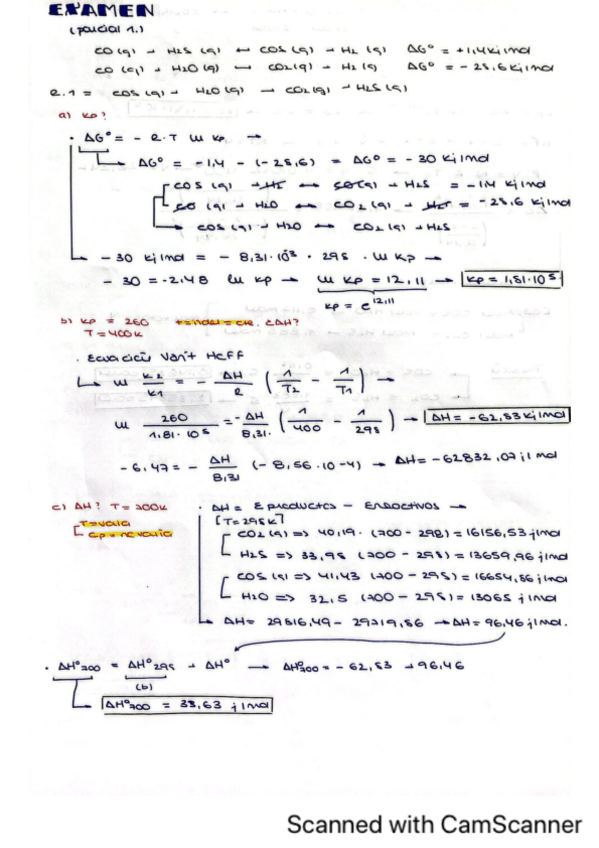 EXAMEN
(parcial 1.)
CO (g) + H2S (g) ↔ COS (g) + H2 (g) ΔG° = +1,4 kj/mol
CO (g) + H2O (g) ↔ CO2 (g) + H2 (g) ΔG° = - 28,6 kj/mol
e.1 = COS (g) + H2O (g) → CO2 (g) + H2S (g)
a) Kp?
· ΔG° = - R·T ln Kp →
ΔG° = -1,4 - (-28,6) = ΔG° = - 30 kj/mol
COS (g) + H2 ↔ CO (g) + H2S = -1,4 kj/mol
CO (g) + H2O ↔ CO2 (g) + H2 = -28,6 kj/mol
COS (g) + H2O ↔ CO2 (g) + H2S
- 30 kj/mol = - 8,31·10⁻³ · 298 · ln Kp →
- 30 = -2,48 ln Kp → ln Kp = 12,11 → Kp = 1,81·10⁵
Kp = e^12,11
b) Kp = 260 ΔH?
T = 400K
· Ecuación Van't Hoff
ln K2/K1 = - ΔH/R (1/T2 - 1/T1) →
ln 260/1,81·10⁵ = -ΔH/8,31 (1/400 - 1/298) → ΔH = -62,83 kj/mol
-6,47 = - ΔH/8,31 (-8,56·10-4) → ΔH = -62832,07 j/mol
c) ΔH? T = 700K · ΔH = Eproductos - Ereactivos →
T = varia [T=298K]
Cp = no varia CO2 (g) => 40,19· (700 - 298) = 16156,53 j/mol
H2S => 33,98 (700 - 298) = 13659,96 j/mol
COS (g) => 41,43 (700 - 298) = 16654,86 j/mol
H2O => 32,5 (700 - 298) = 13065 j/mol
ΔH = 29816,49 - 29719,86 → ΔH = 96,46 j/mol.
· ΔH°700 = ΔH°298 + ΔH° → ΔH°700 = - 62,83 + 96,46
(b)
ΔH°700 = 33,63 j/mol
Scanned with CamScanner